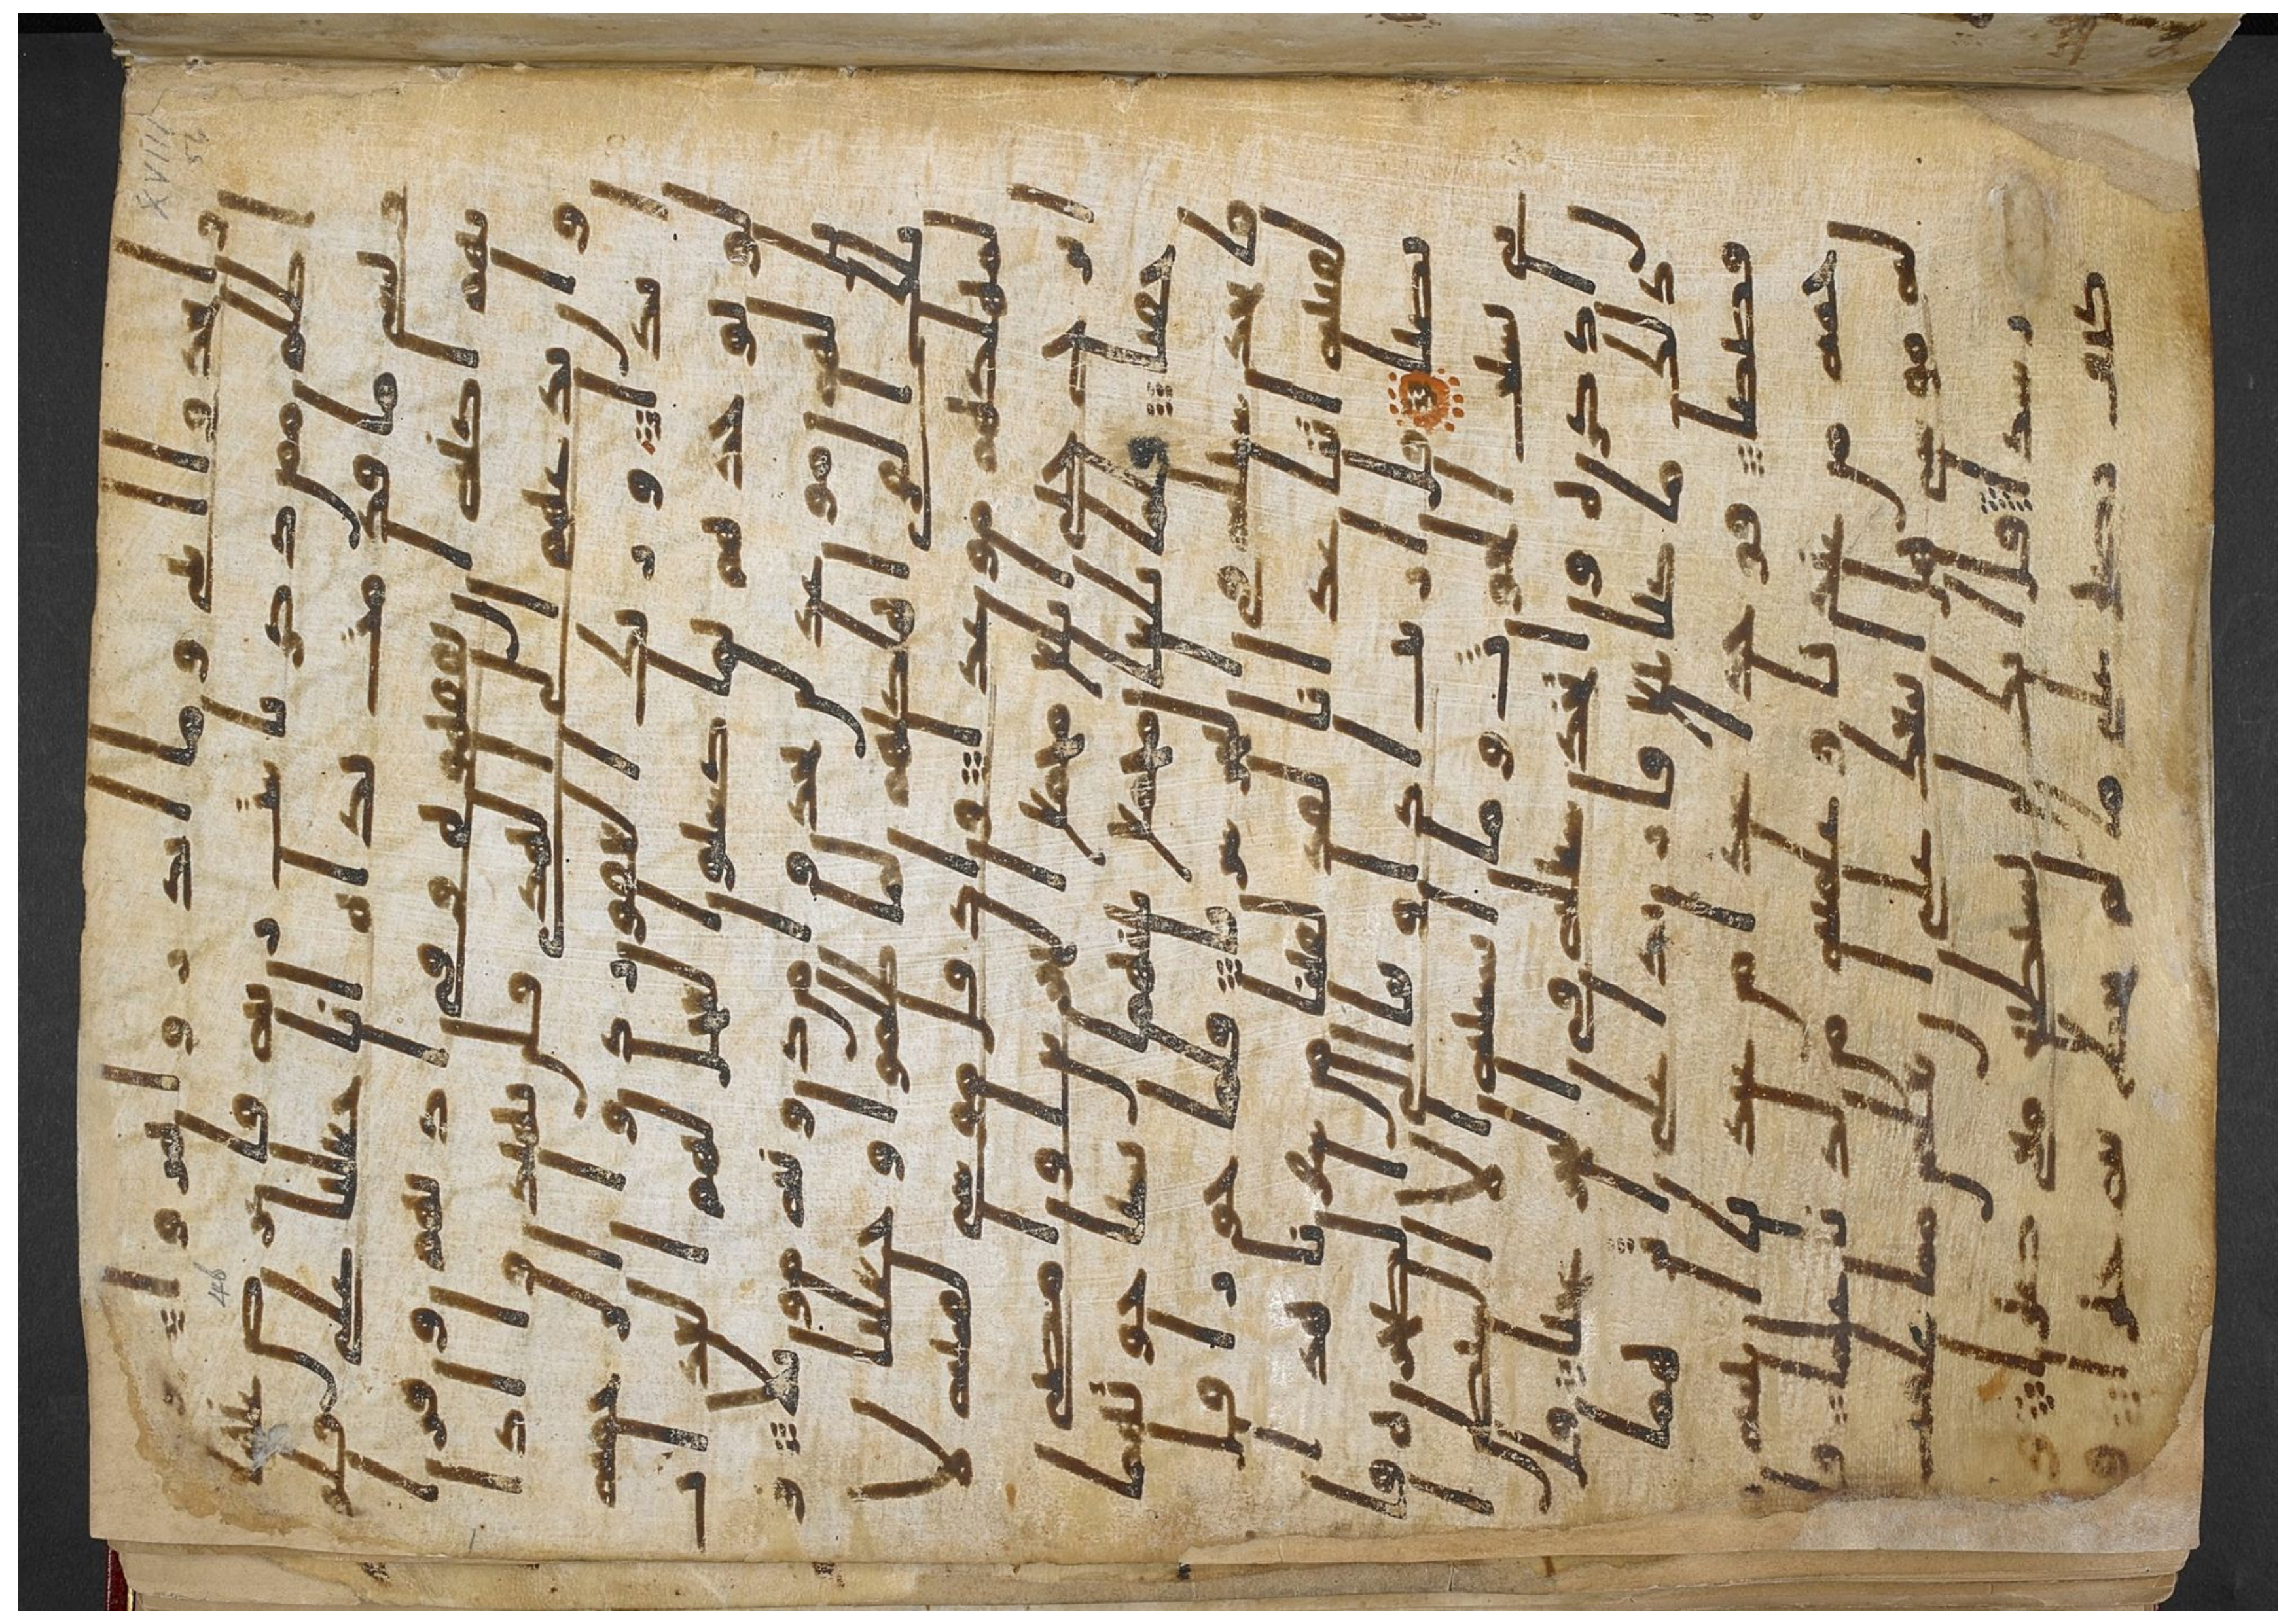 واتخذوا ايتي وما انذروا هزوا و
اظلم ممن ذكر بايت ربه فاعرض عنها
ونسي ما قدمت يداه انا جعلنا على قلو
بهم اكنه ان يفقهوه وفي اذانهم وقرا
وان تدعهم الى الهدى فلن يهتدوا اذا ا
بدا وربك الغفور ذو الرحمه
لو يوخذهم بما كسبوا لعجل لهم العذاب
بل لهم موعد لن يجدوا من دونه مولا و
تلك القرى اهلكنهم لما ظلموا وجعلنا
لمهلكهم موعدا واذ قل موسى لفتيه لا
ابرح حتى ابلغ مجمع البحرين او امضي
حقبا فلما بلغا مجمع بينهما نسيا حوتهما
فاتخذ سبيله في البحر سربا فلما جوزا قل
لفتيه اتنا غدانا لقد لقينا من سفرنا هذا
نصبا قل اريت اذ اوينا الى الصخره فا
ني نسيت الحوت وما انسنيه الا الشيطن ا
ن اذكره واتخذ سبيله في البحر عجبا قل
ذلك ما كنا نبغ فارتدا على اثرهما
قصصا فوجدا عبدا من عبدنا اتينه
رحمه من عندنا وعلمنه من لدنا علما قل
له موسى هل اتبعك على ان تعلمن مما علمت
رشدا قل انك لن تستطيع معي صبرا و
كيف تصبر على ما لم تحط به خبرا ق
XVIII
56
46